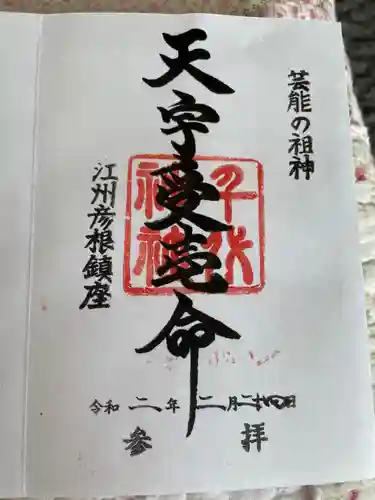 芸能の祖神
天宇受売命
千代神社
江州彦根鎮座
令和 二 年 二 月 二十四日
参拝